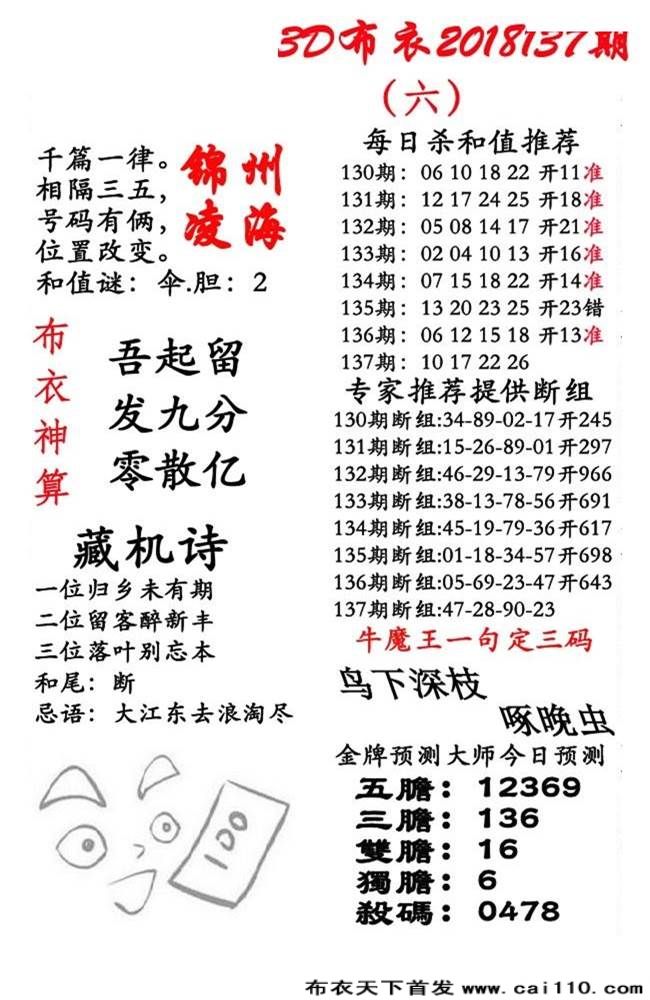 3D布衣2018137期
（六）
千篇一律。
相隔三五，
号码有俩，
位置改变。
和值谜：伞.胆：2
锦州
凌海
布衣神算
吾起留
发九分
零散亿
藏机诗
一位归乡未有期
二位留客醉新丰
三位落叶别忘本
和尾：断
忌语：大江东去浪淘尽
100
每日杀和值推荐
130期：06 10 18 22 开11准
131期：12 17 24 25 开18准
132期：05 08 14 17 开21准
133期：02 04 10 13 开16准
134期：07 15 18 22 开14准
135期：13 20 23 25 开23错
136期：06 12 15 18 开13准
137期：10 17 22 26
专家推荐提供断组
130期断组:34-89-02-17开245
131期断组:15-26-89-01开297
132期断组:46-29-13-79开966
133期断组:38-13-78-56开691
134期断组:45-19-79-36开617
135期断组:01-18-34-57开698
136期断组:05-69-23-47开643
137期断组:47-28-90-23
牛魔王一句定三码
鸟下深枝
啄晚虫
金牌预测大师今日预测
五膽：12369
三膽：136
雙膽：16
獨膽：6
殺碼：0478
布衣天下首发 www.cai110.com